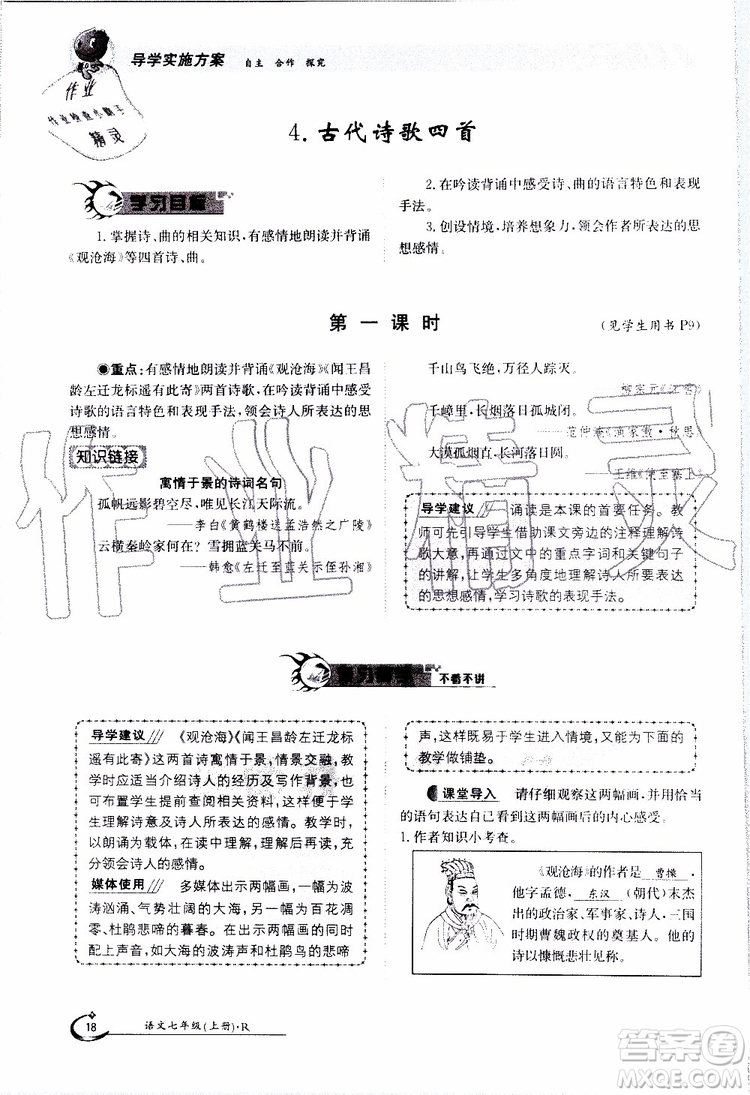 导学实施方案 自主 合作 探究
作业
作业检查小助手
精灵
4. 古代诗歌四首
学习目标
1. 掌握诗、曲的相关知识，有感情地朗读并背诵
《观沧海》等四首诗、曲。
2. 在吟读背诵中感受诗、曲的语言特色和表现
手法。
3. 创设情境，培养想象力，领会作者所表达的思
想感情。
第一课时
(见学生用书 P9)
●重点：有感情地朗读并背诵《观沧海》《闻王昌
龄左迁龙标遥有此寄》两首诗歌，在吟读背诵中感受
诗歌的语言特色和表现手法，领会诗人所表达的思
想感情。
知识链接
寓情于景的诗词名句
孤帆远影碧空尽，唯见长江天际流。
——李白《黄鹤楼送孟浩然之广陵》
云横秦岭家何在？雪拥蓝关马不前。
——韩愈《左迁至蓝关示侄孙湘》
千山鸟飞绝，万径人踪灭。
——柳宗元《江雪》
千嶂里，长烟落日孤城闭。
——范仲淹《渔家傲·秋思》
大漠孤烟直，长河落日圆。
——王维《使至塞上》
导学建议 诵读是本课的首要任务。教
师可先引导学生借助课文旁边的注释理解诗
歌大意，再通过文中的重点字词和关键句子
的讲解，让学生多角度地理解诗人所要表达
的思想感情，学习诗歌的表现手法。
作业精灵
不看不讲
导学建议 《观沧海》《闻王昌龄左迁龙标
遥有此寄》这两首诗寓情于景，情景交融，教
学时应适当介绍诗人的经历及写作背景，也
可布置学生提前查阅相关资料，这样更有利
于学生理解诗意及诗人的感情。教学时，要
以朗读为主，在读中理解，在理解中读，最终
达到体会诗人的感情。
媒体使用 多媒体出示两幅画，一幅为波
涛汹涌、气势壮阔的大海，一幅为杨花凋
零、杜鹃悲啼的暮春。在出示两幅画的同时
配上声音，如大海的波涛声、杜鹃的悲啼
声，这样既易于学生进入情境，又能为下面的
教学做铺垫。
课堂导入 请仔细观察这两幅画，并用恰当
的语句表达自己看到这两幅画后的内心感受。
1. 作者知识小考查。
《观沧海》的作者是 曹操 ，
他字孟德， 东汉 (朝代)末杰
出的政治家、军事家、诗人，三国
时期曹魏政权的奠基人。他的
诗以慷慨悲壮见称。
18
语文七年级(上册)·R
答案圈
MXQE.COM